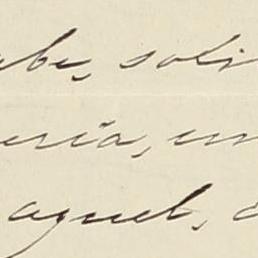 abe, soli
eria, un
aquel,